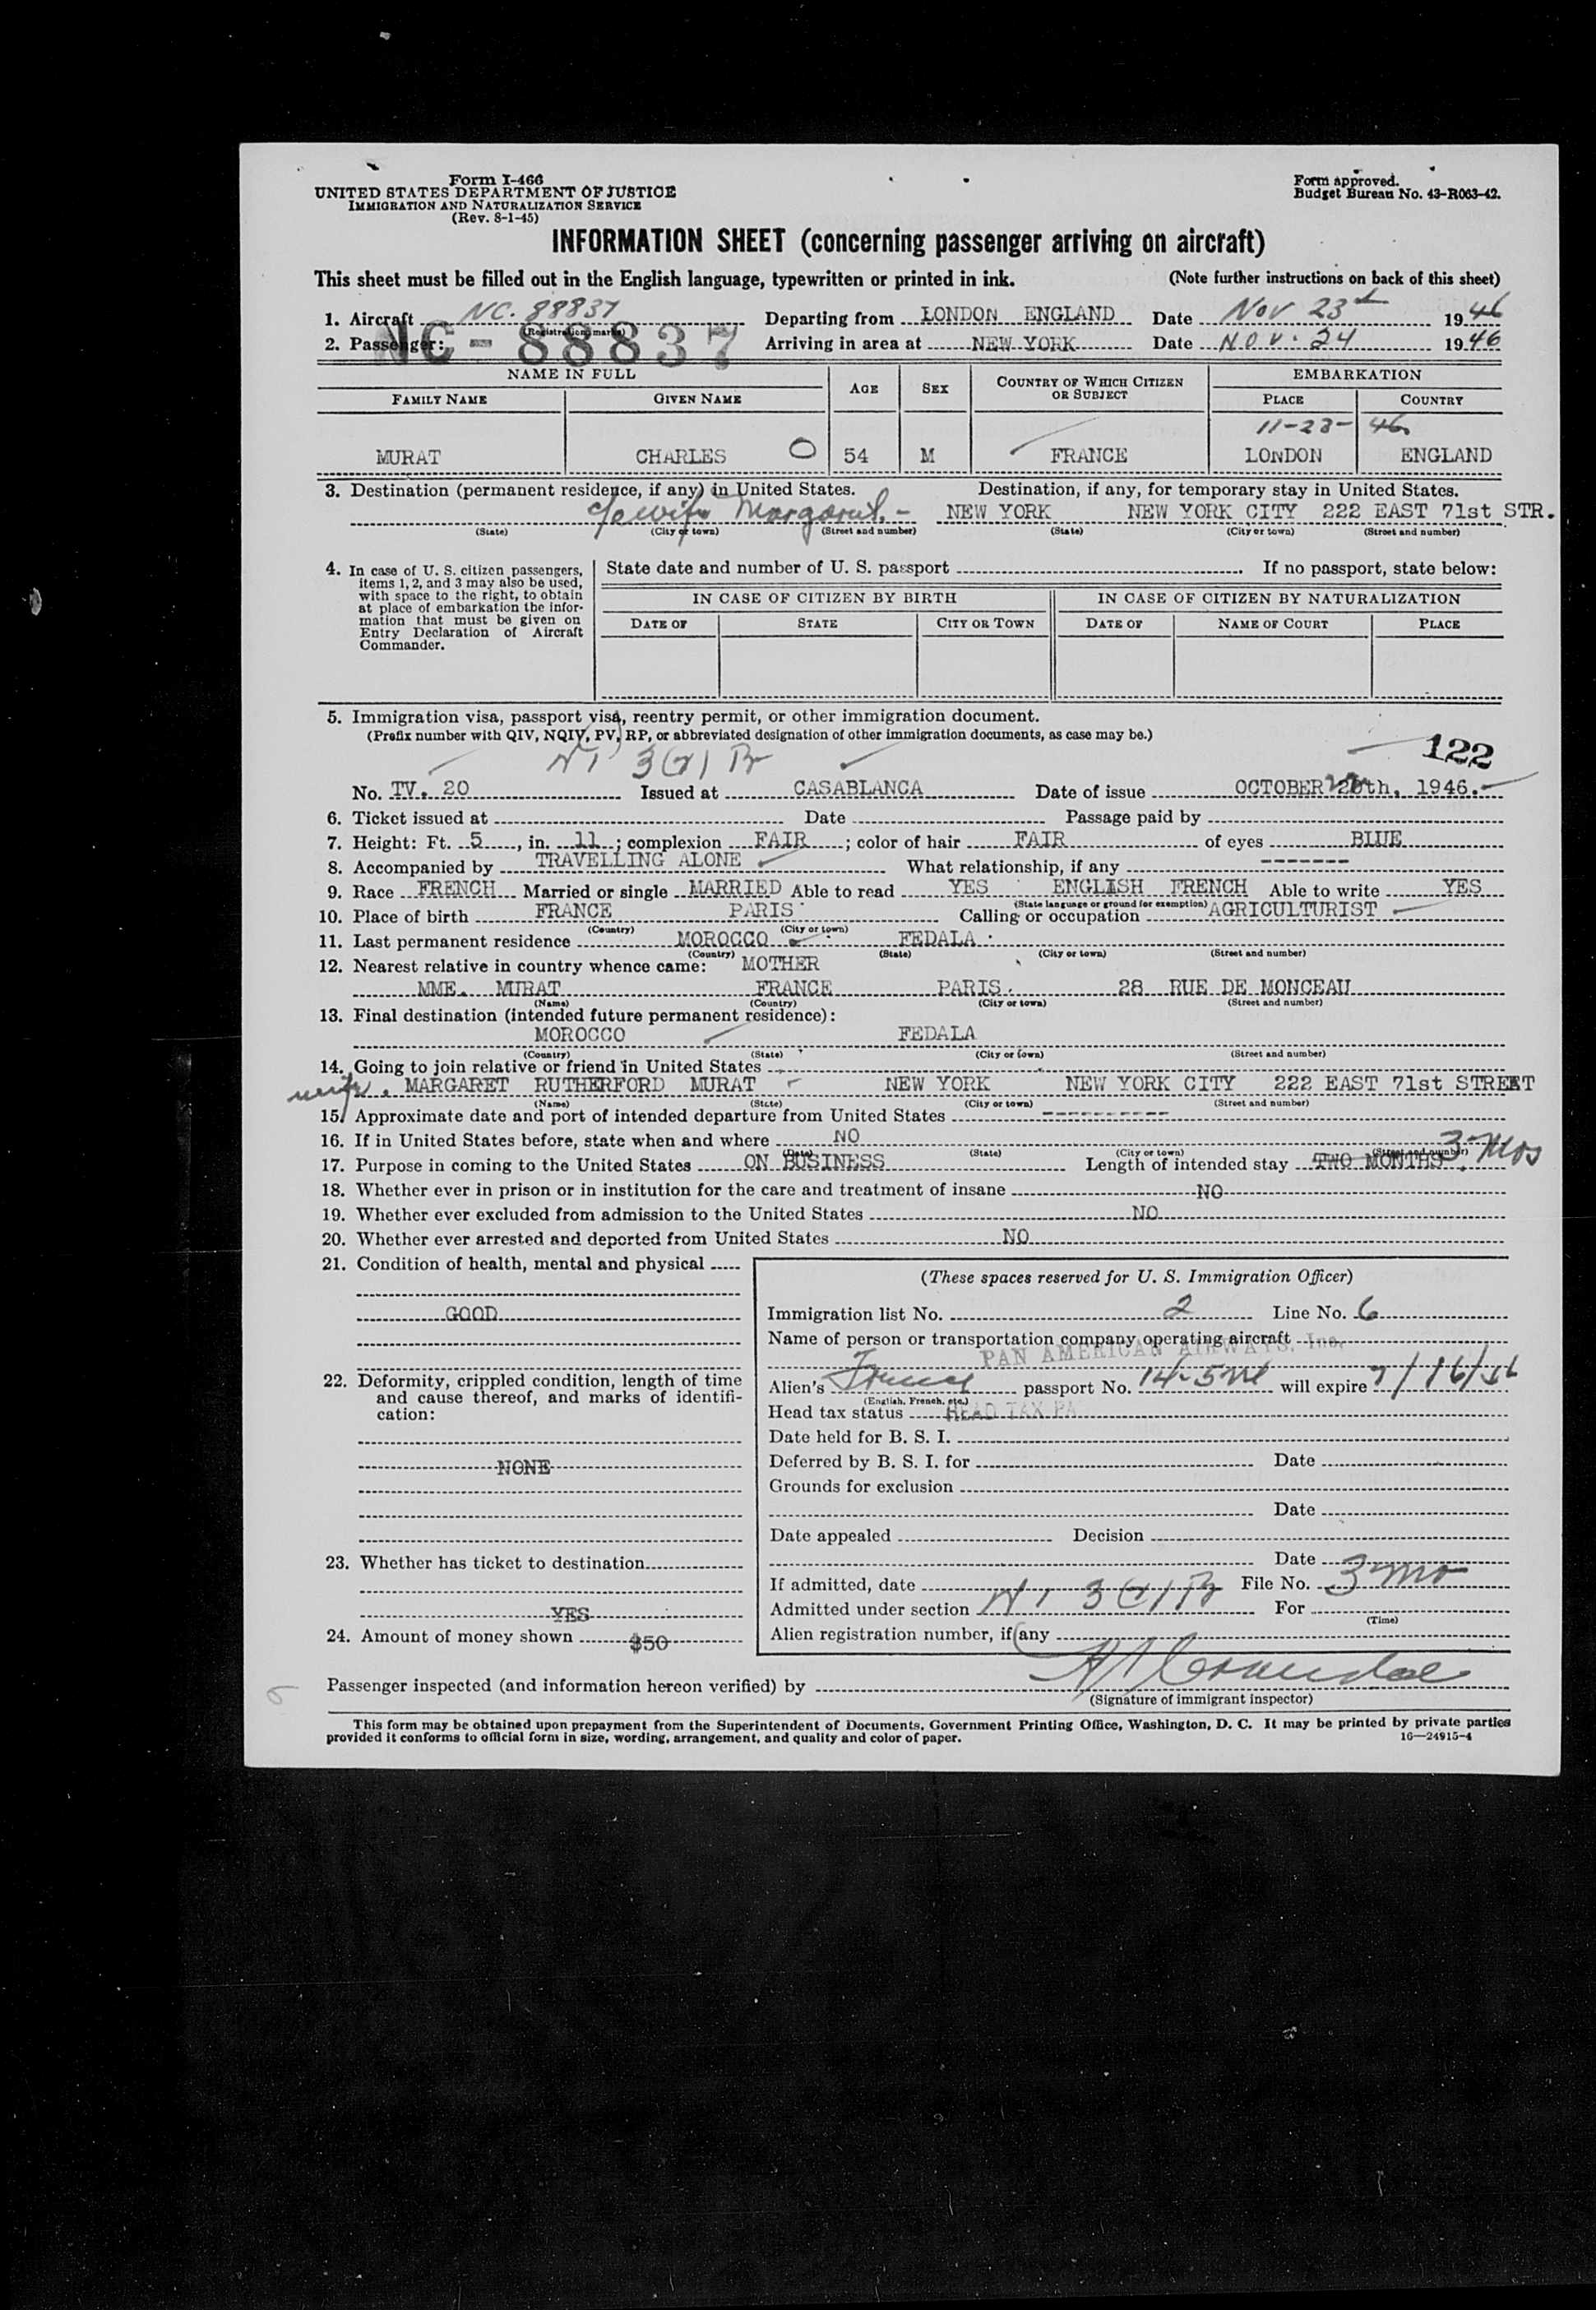 Form I-466
UNITED STATES DEPARTMENT OF JUSTICE
IMMIGRATION AND NATURALIZATION SERVICE
(Rev. 8-1-45)
Form approved.
Budget Bureau No. 43-R063-42.
INFORMATION SHEET (concerning passenger arriving on aircraft)
This sheet must be filled out in the English language, typewritten or printed in ink. (Note further instructions on back of this sheet)
1. Aircraft NC. 88837 Departing from LONDON ENGLAND Date Nov 23d 1946
(Registration marks)
NC-88837
2. Passenger: Arriving in area at NEW YORK Date NOV. 24 1946
NAME IN FULL AGE SEX COUNTRY OF WHICH CITIZEN OR SUBJECT EMBARKATION
FAMILY NAME GIVEN NAME PLACE COUNTRY
11-23-46
MURAT CHARLES O 54 M FRANCE LONDON ENGLAND
3. Destination (permanent residence, if any) in United States. Destination, if any, for temporary stay in United States.
c/o wife Margaret. - NEW YORK NEW YORK CITY 222 EAST 71st STR.
(State) (City or town) (Street and number) (State) (City or town) (Street and number)
4. In case of U. S. citizen passengers, items 1, 2, and 3 may also be used, with space to the right, to obtain at place of embarkation the information that must be given on Entry Declaration of Aircraft Commander.
State date and number of U. S. passport If no passport, state below:
IN CASE OF CITIZEN BY BIRTH IN CASE OF CITIZEN BY NATURALIZATION
DATE OF STATE CITY OR TOWN DATE OF NAME OF COURT PLACE
5. Immigration visa, passport visa, reentry permit, or other immigration document.
(Prefix number with QIV, NQIV, PV, RP, or abbreviated designation of other immigration documents, as case may be.)
122
No. TV. 20 Issued at CASABLANCA Date of issue OCTOBER th, 1946.
6. Ticket issued at Date Passage paid by
7. Height: Ft. 5, in. 11; complexion FAIR; color of hair FAIR of eyes BLUE
8. Accompanied by TRAVELLING ALONE What relationship, if any -------
9. Race FRENCH Married or single MARRIED Able to read YES ENGLISH FRENCH Able to write YES
(State language or ground for exemption)
10. Place of birth FRANCE PARIS Calling or occupation AGRICULTURIST
(Country) (City or town)
11. Last permanent residence MOROCCO FEDALA
(Country) (State) (City or town) (Street and number)
12. Nearest relative in country whence came: MOTHER
MME. MURAT FRANCE PARIS. 28 RUE DE MONCEAU
(Name) (Country) (City or town) (Street and number)
13. Final destination (intended future permanent residence):
MOROCCO FEDALA
(Country) (State) (City or town) (Street and number)
14. Going to join relative or friend in United States
wife. MARGARET RUTHERFORD MURAT NEW YORK NEW YORK CITY 222 EAST 71st STREET
(Name) (State) (City or town) (Street and number)
15. Approximate date and port of intended departure from United States ----------
16. If in United States before, state when and where NO
(Date) (State) (City or town) (Street and number)
17. Purpose in coming to the United States ON BUSINESS Length of intended stay TWO MONTHS. 3 Mos
18. Whether ever in prison or in institution for the care and treatment of insane NO
19. Whether ever excluded from admission to the United States NO
20. Whether ever arrested and deported from United States NO
21. Condition of health, mental and physical
GOOD
22. Deformity, crippled condition, length of time and cause thereof, and marks of identification:
NONE
23. Whether has ticket to destination
YES
24. Amount of money shown $50
(These spaces reserved for U. S. Immigration Officer)
Immigration list No. 2 Line No. 6
Name of person or transportation company operating aircraft
PAN AMERICAN AIRWAYS, Inc.
Alien's French passport No. will expire
(English, French, etc.)
Head tax status HEAD TAX PA
Date held for B. S. I.
Deferred by B. S. I. for Date
Grounds for exclusion
Date
Date appealed Decision
Date
If admitted, date File No.
Admitted under section For 3 mo
(Time)
Alien registration number, if any
Passenger inspected (and information hereon verified) by
(Signature of immigrant inspector)
This form may be obtained upon prepayment from the Superintendent of Documents, Government Printing Office, Washington, D. C. It may be printed by private parties
provided it conforms to official form in size, wording, arrangement, and quality and color of paper. 16—24915-4